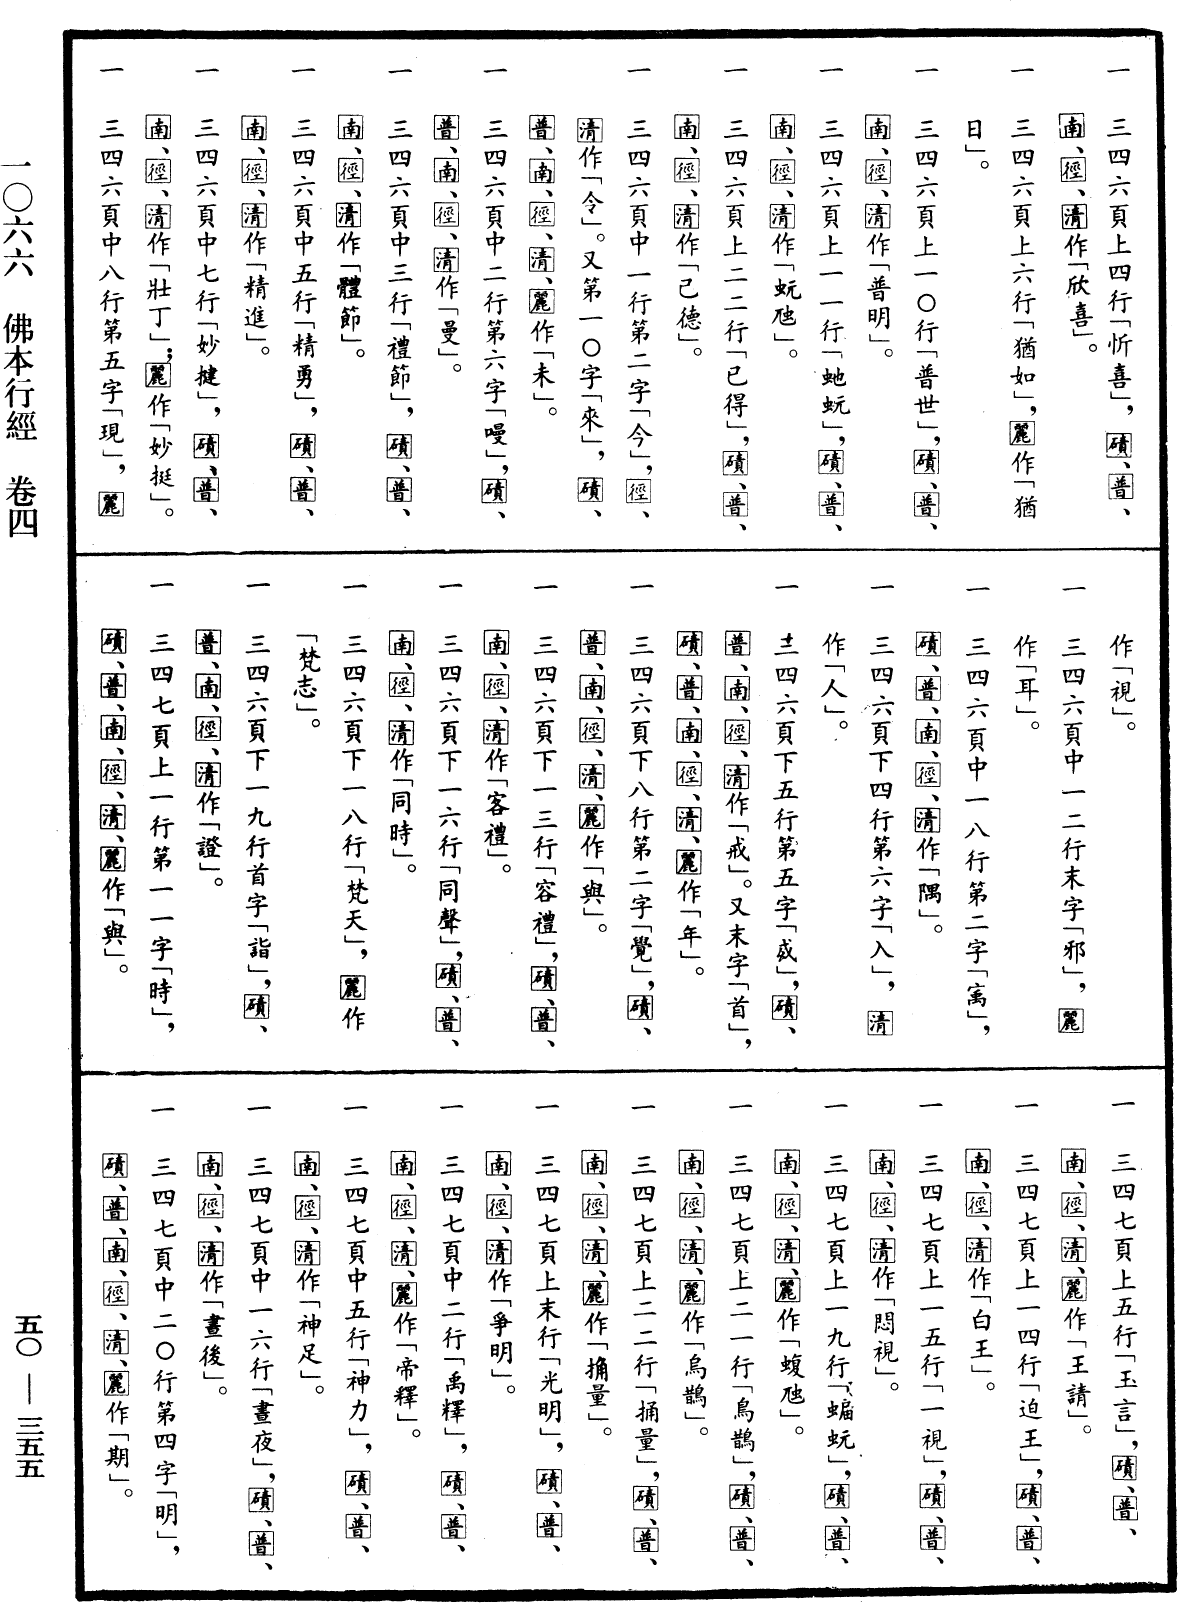 一　三四六頁上四行「忻喜」，磧、普、
南、徑、清作「欣喜」。
一　三四六頁上六行「猶如」，麗作「猶
日」。
一　三四六頁上一〇行「普世」，磧、普、
南、徑、清作「普明」。
一　三四六頁上一一行「虵蚖」，磧、普、
南、徑、清作「蚖虺」。
一　三四六頁上二二行「已得」，磧、普、
南、徑、清作「己德」。
一　三四六頁中一行第二字「今」，徑、
清作「令」。又第一〇字「來」，磧、
普、南、徑、清、麗作「未」。
一　三四六頁中二行第六字「嘜」，磧、
普、南、徑、清作「曼」。
一　三四六頁中三行「禮節」，磧、普、
南、徑、清作「體節」。
一　三四六頁中五行「精勇」，磧、普、
南、徑、清作「精進」。
一　三四六頁中七行「妙揵」，磧、普、
南、徑、清作「壯丁」；麗作「妙挺」。
一　三四六頁中八行第五字「現」，麗
作「視」。
一　三四六頁中一二行末字「邪」，麗
作「耳」。
一　三四六頁中一八行第二字「寓」，
磧、普、南、徑、清作「隅」。
一　三四六頁下四行第六字「入」，清
作「人」。
一　三四六頁下五行第五字「惑」，磧、
普、南、徑、清作「戒」。又末字「首」，
磧、普、南、徑、清、麗作「年」。
一　三四六頁下八行第二字「覺」，磧、
普、南、徑、清、麗作「與」。
一　三四六頁下一三行「容禮」，磧、普、
南、徑、清作「客禮」。
一　三四六頁下一六行「同聲」，磧、普、
南、徑、清作「同時」。
一　三四六頁下一八行「梵天」，麗作
「梵志」。
一　三四六頁下一九行首字「詣」，磧、
普、南、徑、清作「證」。
一　三四七頁上一行第一一字「時」，
磧、普、南、徑、清、麗作「與」。
一　三四七頁上五行「玉言」，磧、普、
南、徑、清、麗作「王請」。
一　三四七頁上一四行「迫王」，磧、普、
南、徑、清作「白王」。
一　三四七頁上一五行「一視」，磧、普、
南、徑、清作「悶視」。
一　三四七頁上一九行「蝙蚖」，磧、普、
南、徑、清、麗作「蝮虺」。
一　三四七頁上二一行「鳥鵲」，磧、普、
南、徑、清、麗作「烏鵲」。
一　三四七頁上二二行「捅量」，磧、普、
南、徑、清、麗作「捔量」。
一　三四七頁上末行「光明」，磧、普、
南、徑、清作「爭明」。
一　三四七頁中二行「禹釋」，磧、普、
南、徑、清、麗作「帝釋」。
一　三四七頁中五行「神力」，磧、普、
南、徑、清作「神足」。
一　三四七頁中一六行「晝夜」，磧、普、
南、徑、清作「晝後」。
一　三四七頁中二〇行第四字「明」，
磧、普、南、徑、清、麗作「期」。
一〇六六　佛本行經　卷四
五〇—三五五